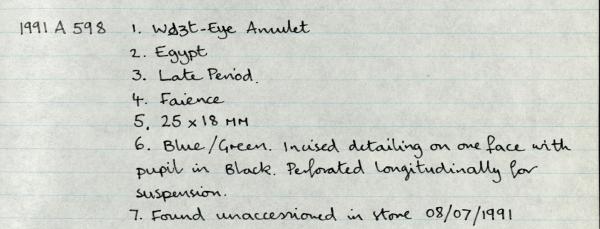 1991 A 598 1. Wd3t-Eye Amulet
2. Egypt
3. Late Period.
4. Faience
5. 25 x 18 MM
6. Blue/Green. Incised detailing on one face with
pupil in Black. Perforated longitudinally for
suspension.
7. Found unaccessioned in store 08/07/1991